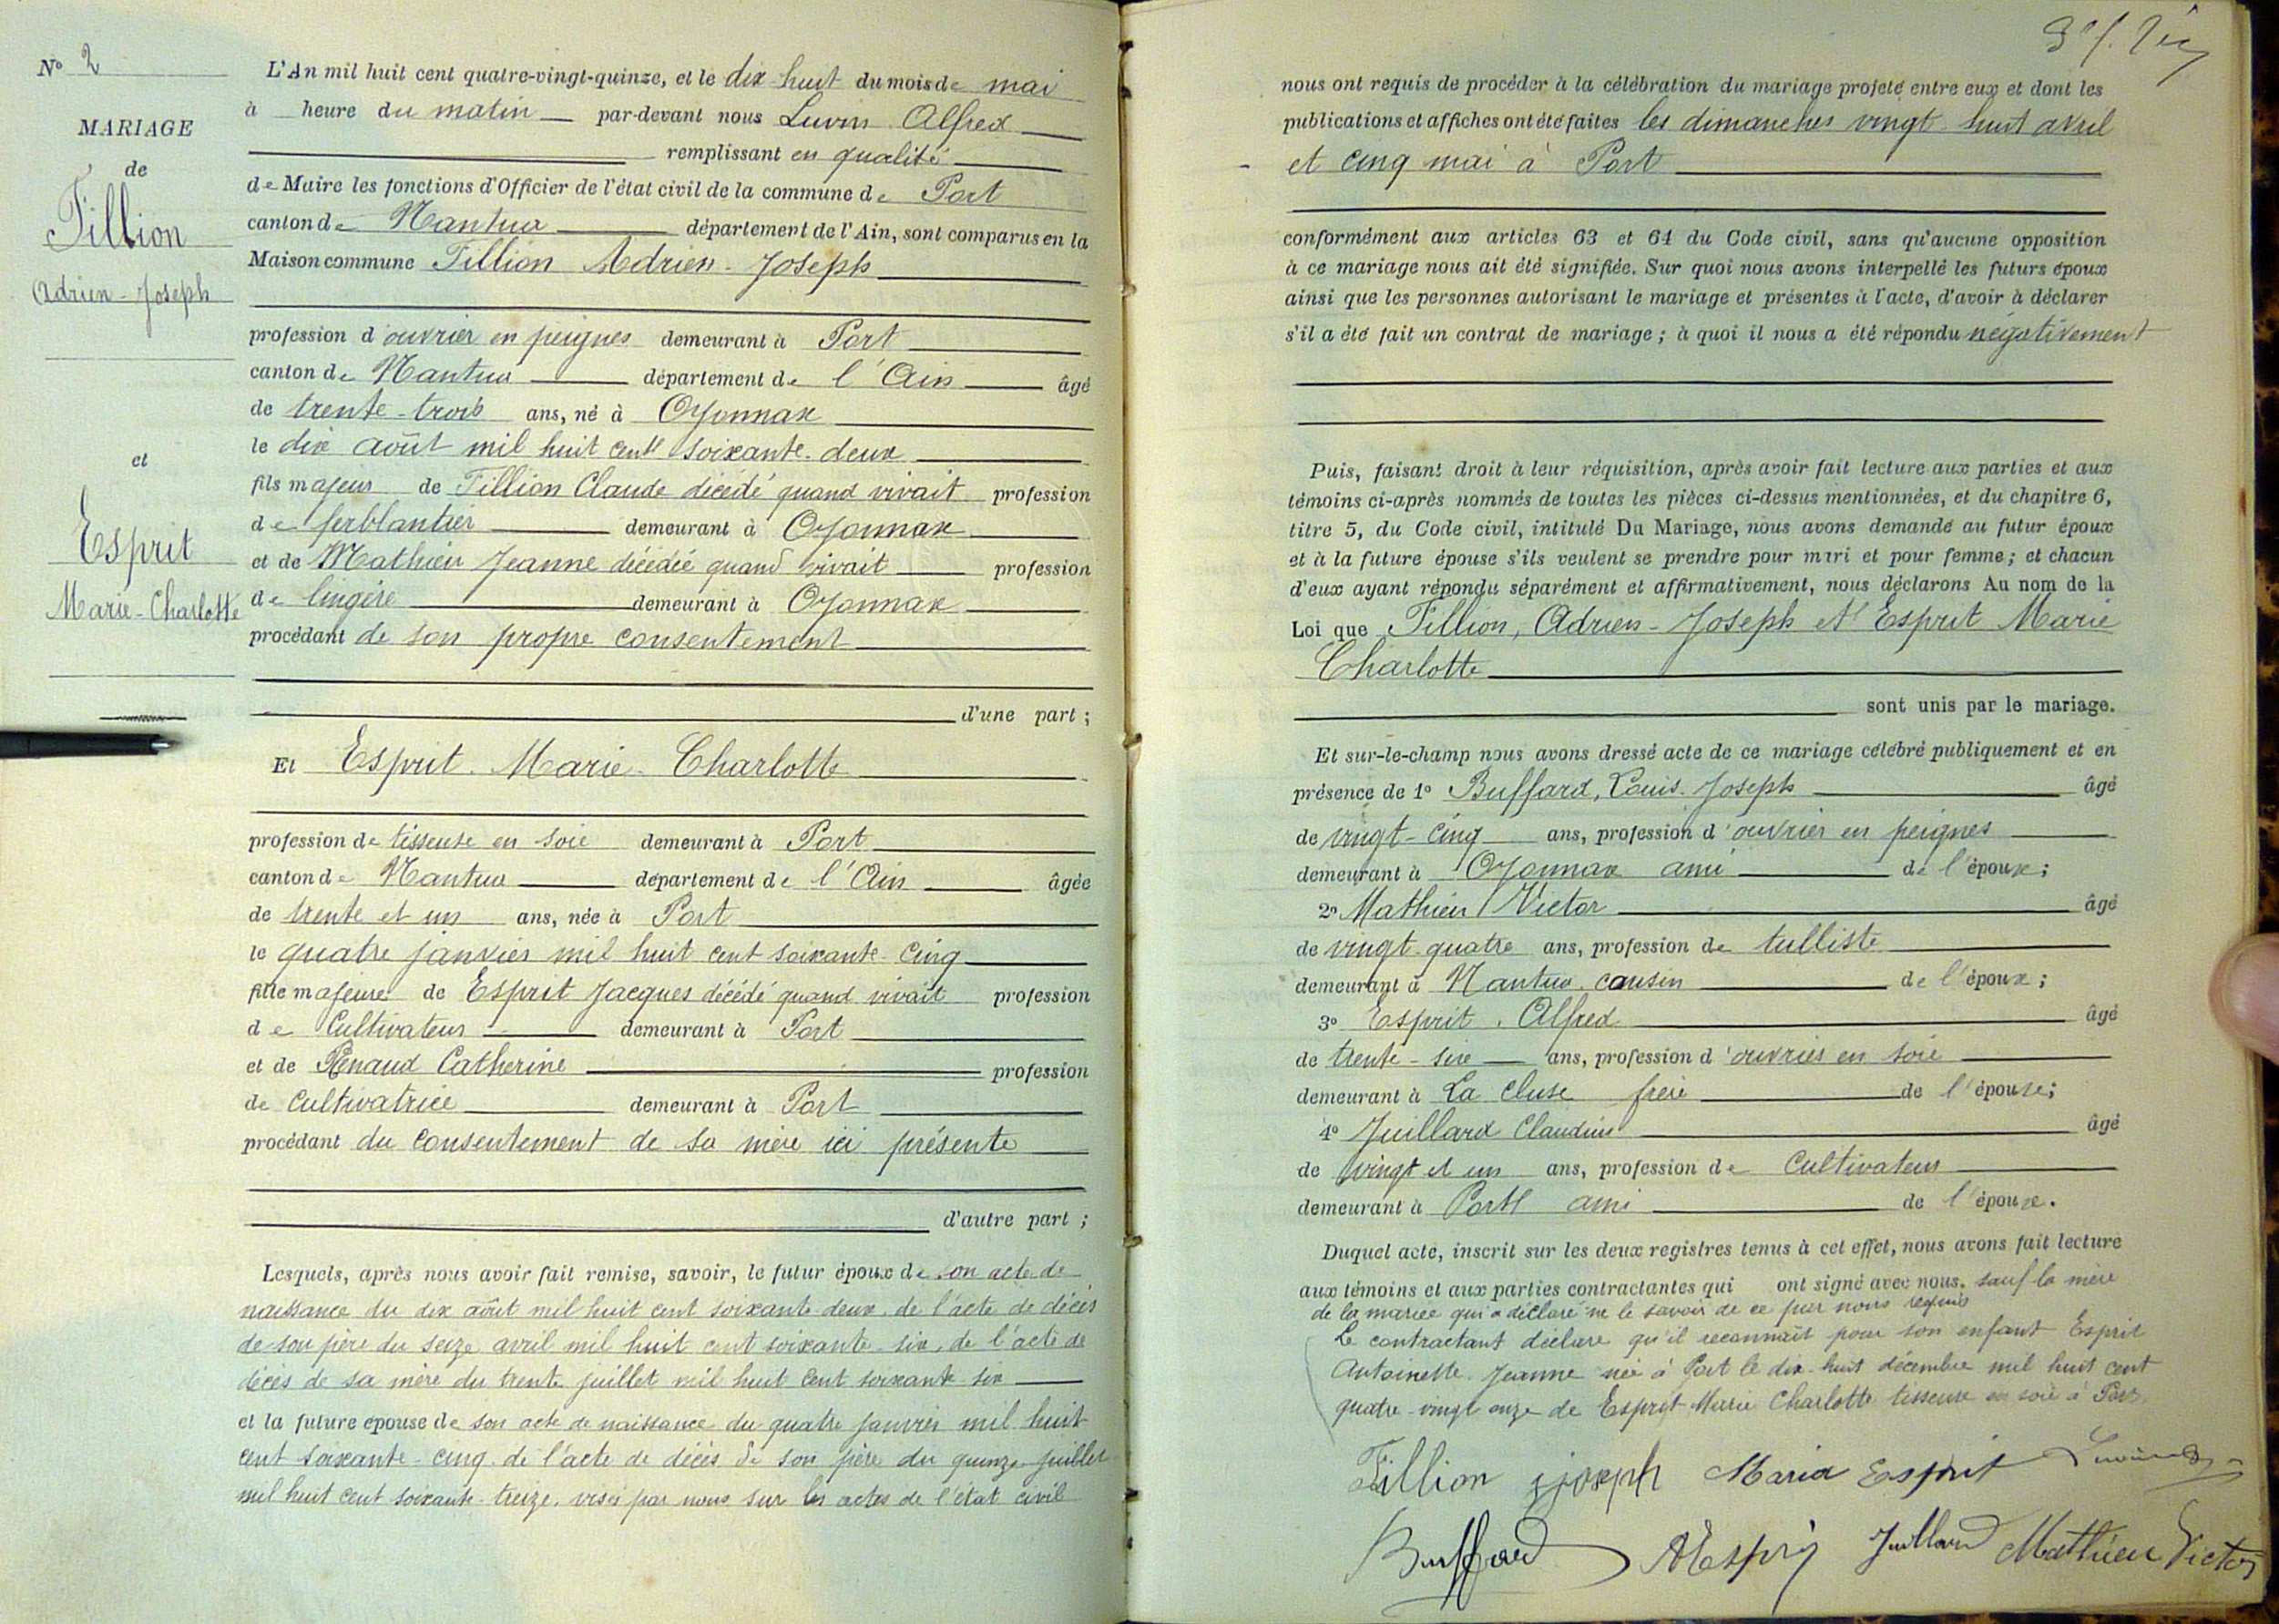 N° 2
MARIAGE
de
Tillion
Adrien-Joseph
et
Esprit
Marie-Charlotte
L'An mil huit cent quatre-vingt-quinze, et le dix huit du mois de mai
à heure du matin par-devant nous Alfred
remplissant en qualité
de Maire les fonctions d'Officier de l'état civil de la commune de Port
canton de Nantua département de l'Ain, sont comparus en la
Maison commune Tillion Adrien-Joseph
profession d'ouvrier en peignes demeurant à Port
canton de Nantua département de l'Ain âgé
de trente-trois ans, né à Oyonnax
le dix août mil huit cent soixante-deux
fils majeur de Tillion Claude décédé quand vivait profession
de ferblantier demeurant à Oyonnax
et de Mathieu Jeanne décédée quand vivait profession
de lingère demeurant à Oyonnax
procédant de son propre consentement
d'une part ;
Et Esprit Marie-Charlotte
profession de tisseuse en soie demeurant à Port
canton de Nantua département de l'Ain âgée
de trente et un ans, née à Port
le quatre janvier mil huit cent soixante-cinq
fille majeure de Esprit Jacques décédé quand vivait profession
de Cultivateur demeurant à Port
et de Renaud Catherine profession
de Cultivatrice demeurant à Port
procédant du consentement de sa mère ici présente
d'autre part ;
Lesquels, après nous avoir fait remise, savoir, le futur époux de son acte de
naissance du dix août mil huit cent soixante-deux, de l'acte de décès
de son père du seize avril mil huit cent soixante-six, de l'acte de
décès de sa mère du trente juillet mil huit cent soixante six
et la future épouse de son acte de naissance du quatre janvier mil huit
cent soixante-cinq, de l'acte de décès de son père du quinze juillet
mil huit cent soixante-treize, visés par nous sur les actes de l'état civil
nous ont requis de procéder à la célébration du mariage projeté entre eux et dont les
publications et affiches ont été faites les dimanches vingt-huit avril
et cinq mai à Port
conformément aux articles 63 et 64 du Code civil, sans qu'aucune opposition
à ce mariage nous ait été signifiée. Sur quoi nous avons interpellé les futurs époux
ainsi que les personnes autorisant le mariage et présentes à l'acte, d'avoir à déclarer
s'il a été fait un contrat de mariage ; à quoi il nous a été répondu négativement
Puis, faisant droit à leur réquisition, après avoir fait lecture aux parties et aux
témoins ci-après nommés de toutes les pièces ci-dessus mentionnées, et du chapitre 6,
titre 5, du Code civil, intitulé Du Mariage, nous avons demandé au futur époux
et à la future épouse s'ils veulent se prendre pour mari et pour femme ; et chacun
d'eux ayant répondu séparément et affirmativement, nous déclarons Au nom de la
Loi que Tillion, Adrien-Joseph et Esprit Marie
Charlotte
sont unis par le mariage.
Et sur-le-champ nous avons dressé acte de ce mariage célébré publiquement et en
présence de 1° Buffard, Louis-Joseph âgé
de vingt-cinq ans, profession d'ouvrier en peignes
demeurant à Oyonnax ami de l'époux ;
2° Mathieu Victor âgé
de vingt-quatre ans, profession de tulliste
demeurant à Nantua cousin de l'époux ;
3° Esprit Alfred âgé
de trente-six ans, profession d'ouvrier en soie
demeurant à La Cluse frère de l'épouse ;
4° Juillard Claudius âgé
de vingt et un ans, profession de Cultivateur
demeurant à Port ami de l'époux.
Duquel acte, inscrit sur les deux registres tenus à cet effet, nous avons fait lecture
aux témoins et aux parties contractantes qui ont signé avec nous. sauf la mère
de la mariée qui a déclaré ne le savoir de ce par nous requis
Le contractant déclare qu'il reconnaît pour son enfant Esprit
Antoinette Jeanne née à Port le dix-huit décembre mil huit cent
quatre-vingt onze de Esprit Marie Charlotte tisseuse en soie à Port.
Tillion joseph Maria Esprit
Buffard AEsprit Juillard Mathieu Victor